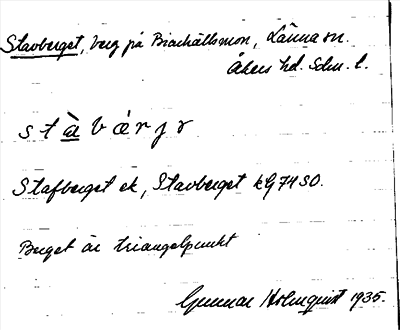 Stavberget, berg på Brachällsmon, Länna sn.
Åkers hd. Södm. l.
s t à v ä r j r
Stafberget ek, Stavberget kG74SO.
Berget är triangelpunkt
Gunnar Holmquist 1935.